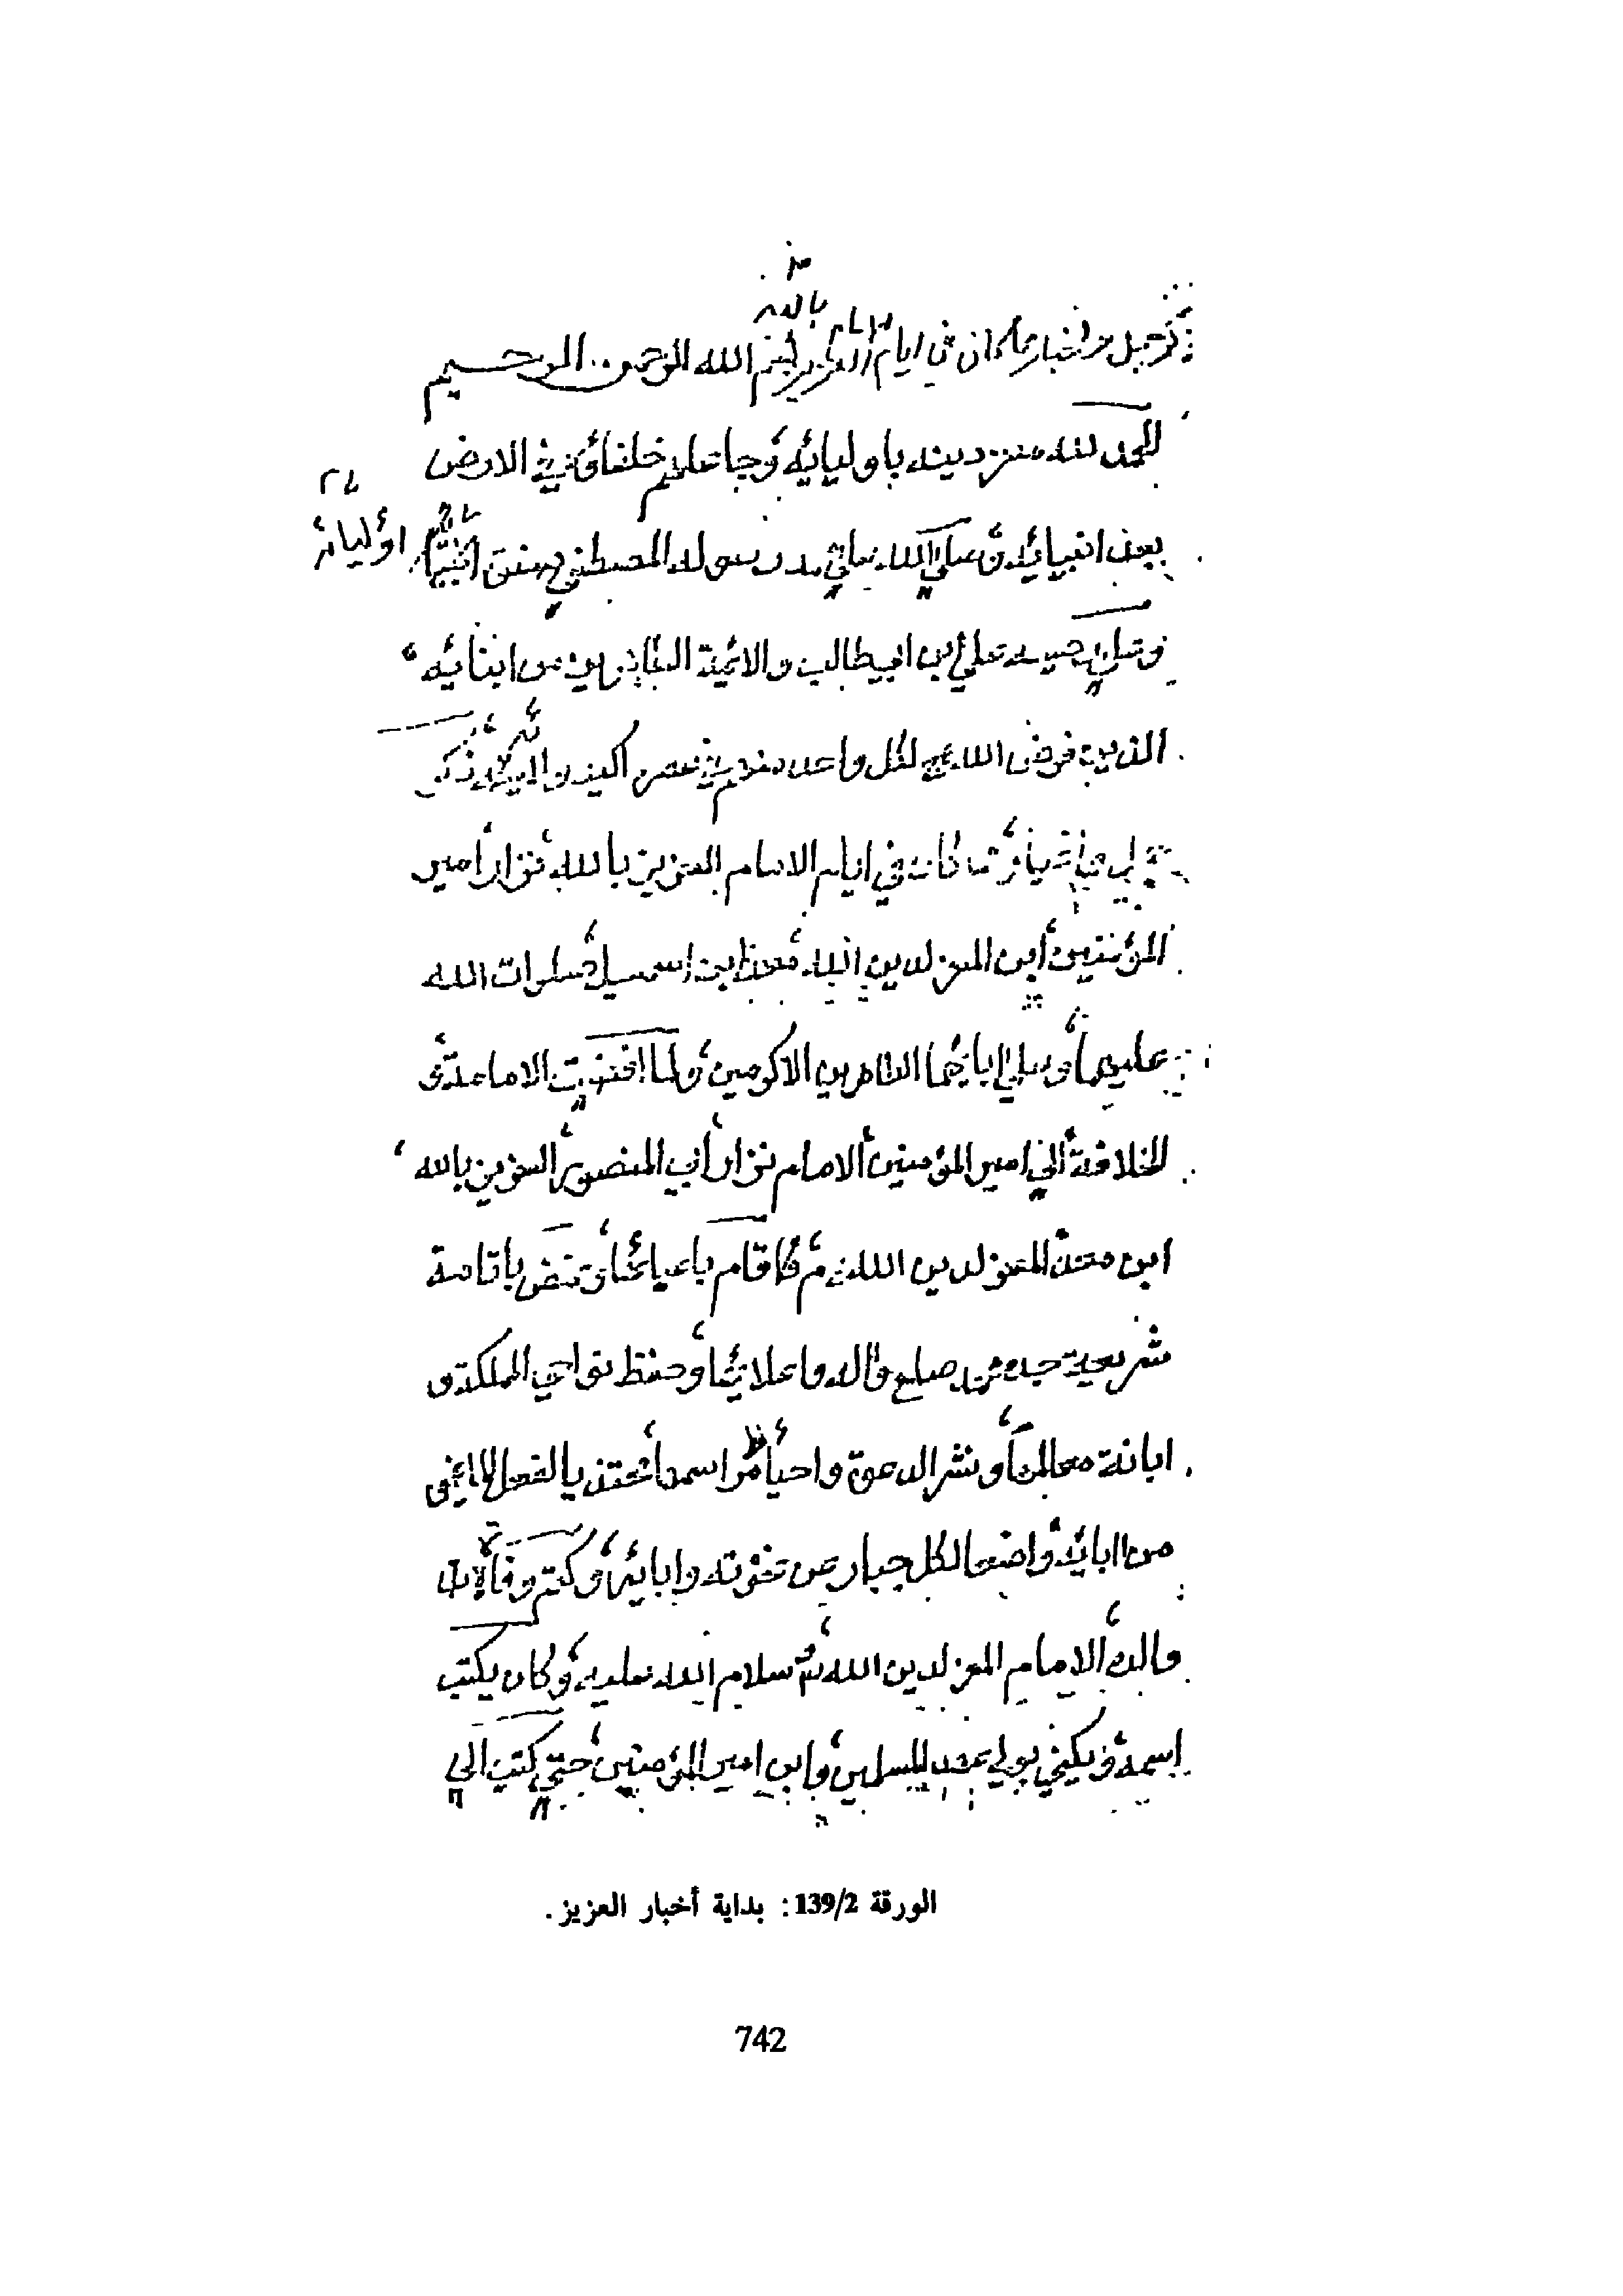 ذكر جمل من اخبار ما كان في ايام العزيز بالله بسم الله الرحمن الرحيم
الحمد لله معز دينه باوليائه وجاعلهم خلفائه في الارض
بعد انبيائه وصلى الله على رسوله المصطفى اوليائه
وعلى وصيه علي بن ابيطالب والائمة الطاهرين من ابنائه
الذين فرض الله لكل واحد منهم في عصره
كانت في ايام الامام العزيز بالله نزار امير
المؤمنين ابن المعز لدين الله معد بن اسمعيل صلوات الله
عليهما وعلى ابائهما الطاهرين الاكرمين ولما افضت الامامة و
الخلافة الى امير المؤمنين الامام نزار ابي المنصور العزيز بالله
ابن معد المعز لدين الله قام باعبائها ونهض باقامة
شريعة جده محمد صلع واله واعلائها وحفظ نواحي المملكة و
ابانة معالمها ونشر الدعوة واحيا مراسمها
من ابائه واضعا لكل جبار عن نخوته وابائه وكتم وفاة
والده الامام المعز لدين الله سلام الله عليه وكان يكتب
اسمه ويكنى بولي عهد المسلمين وابن امير المؤمنين حتى كتب الى
الورقة 139/2: بداية أخبار العزيز.
742